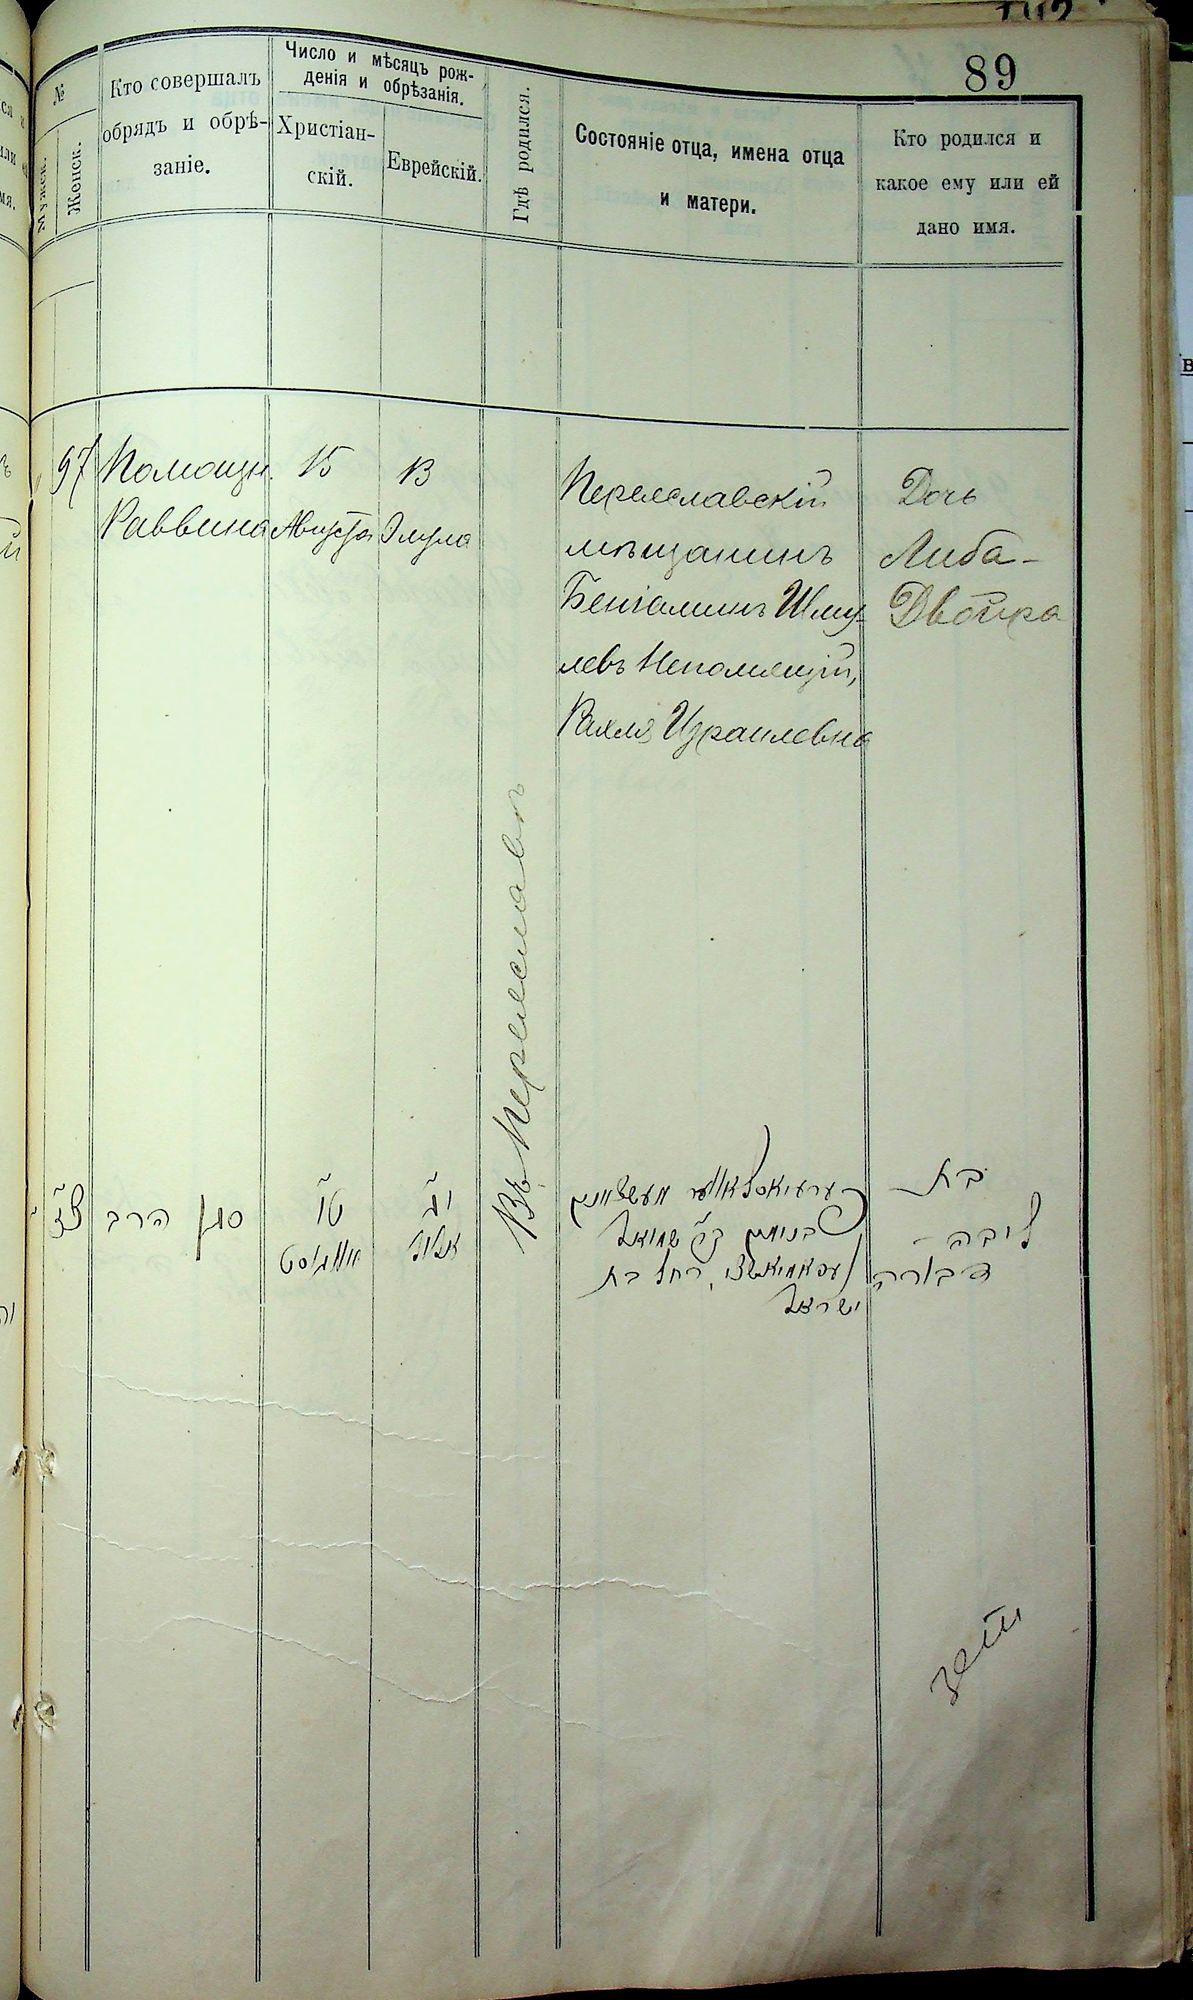 89
№
Мужск.
Женск.
Кто совершалъ
обрядъ и обрѣ-
заніе.
Число и мѣсяцъ рож-
денія и обрѣзанія.
Христіан-
скій.
Еврейскій.
Гдѣ родился.
Состояніе отца, имена отца
и матери.
Кто родился и
какое ему или ей
дано имя.
97
Помощн.
Раввина
15
Августа
13
Элула
Въ Переяславѣ
Переяславскій
мѣщанинъ
Беніаминъ Шму-
левъ Непомящій,
Рахля Израилевна
Дочь
Либа-
Двойра
צ״ז
סגן הרב
ט״ו
אויגוסט
י״ג
אלול
בנימין ב״ר שמואל
רחל בת
ישראל
בת
ליבה -
דבורה